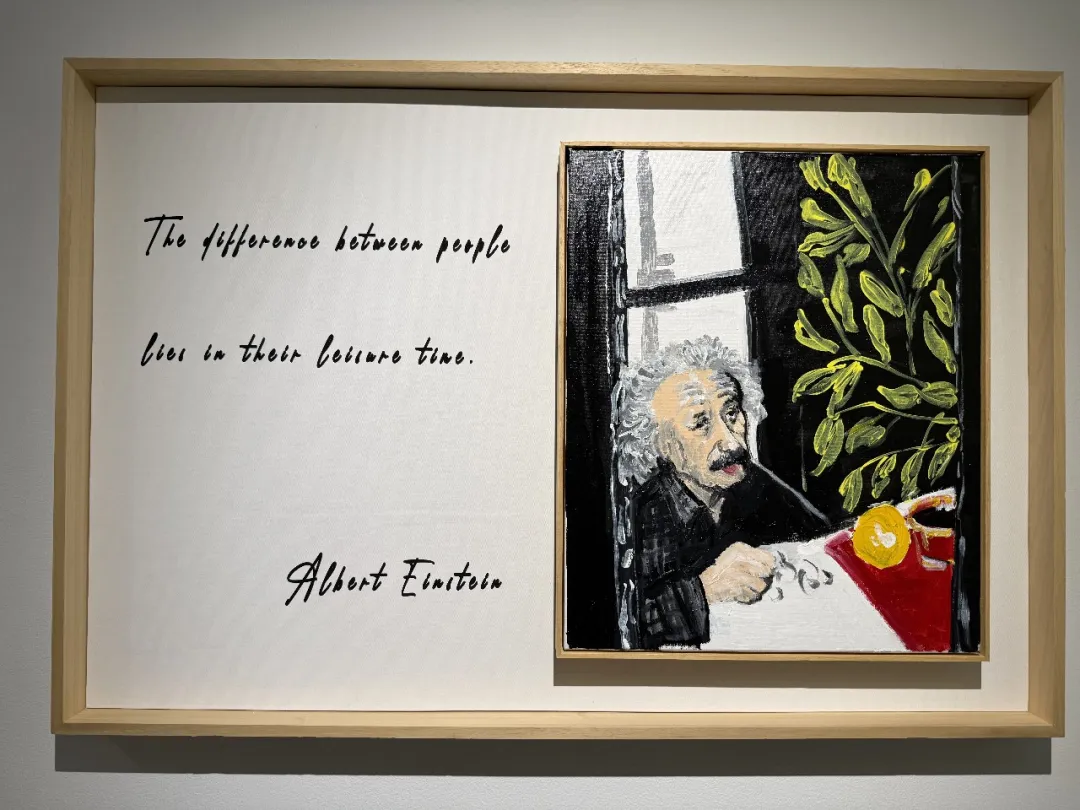 The difference between people
lies in their leisure time.
Albert Einstein